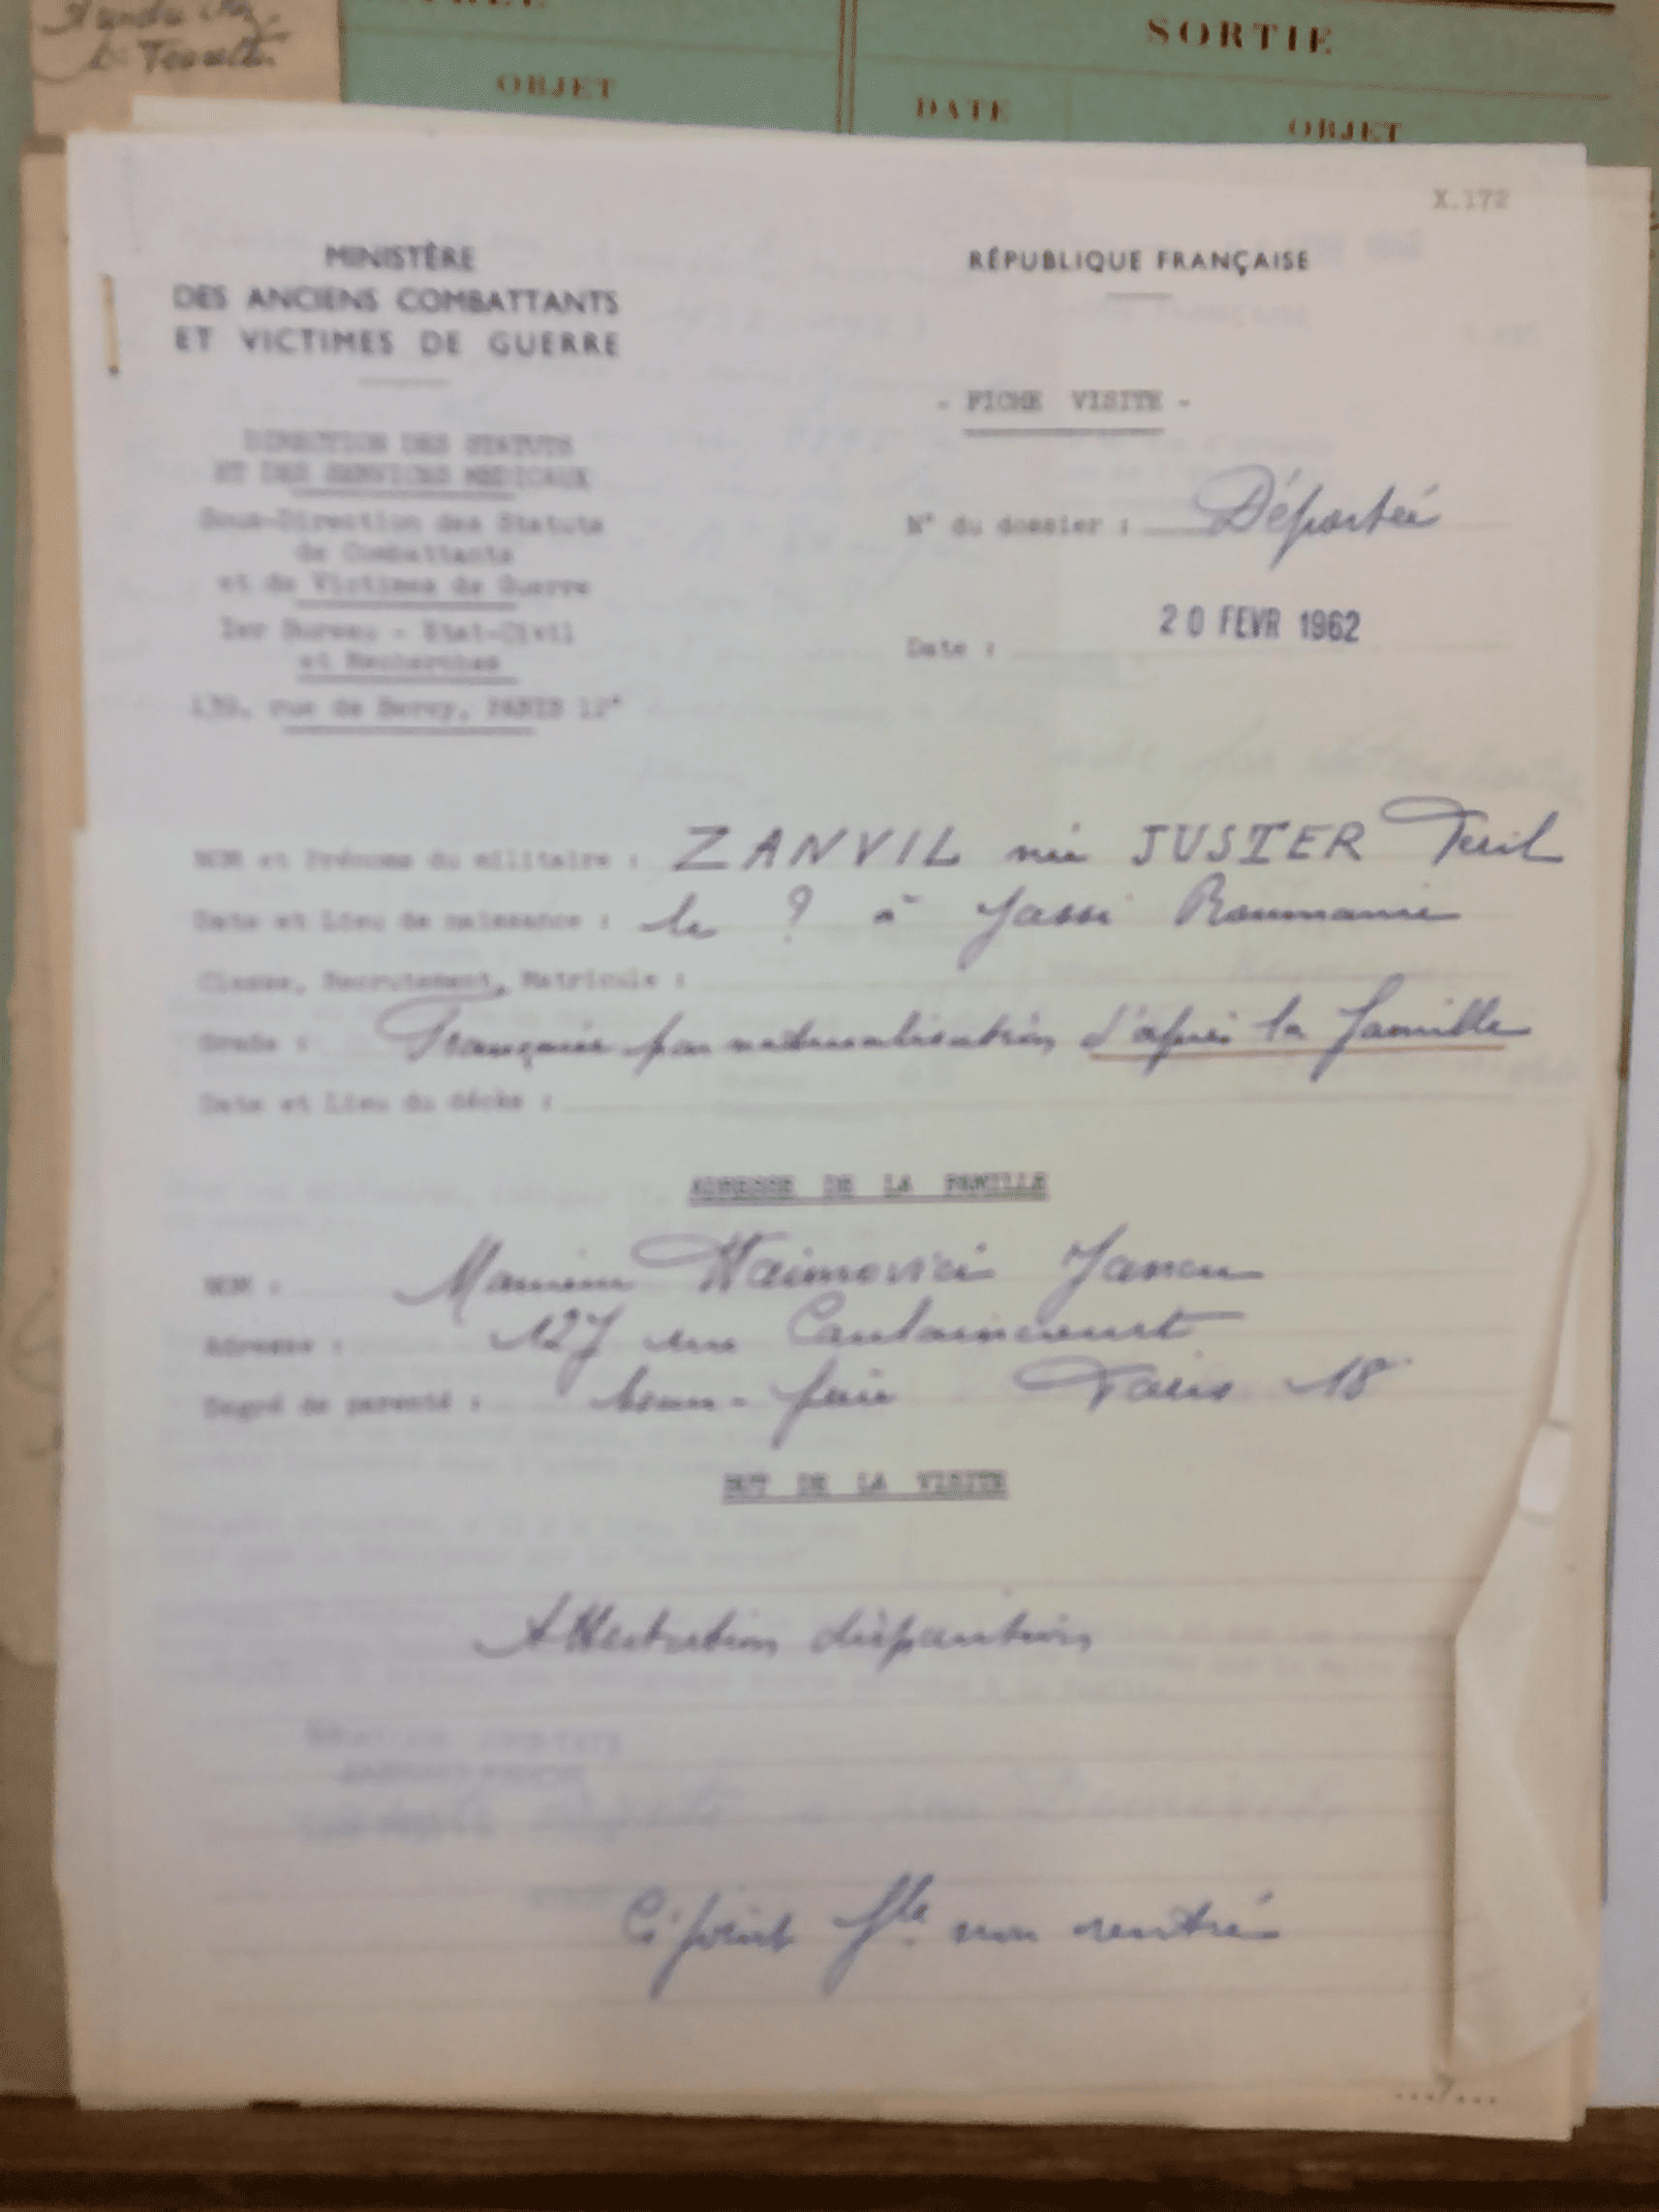 SORTIE
OBJET
DATE
OBJET
X.172
MINISTÈRE
DES ANCIENS COMBATTANTS
ET VICTIMES DE GUERRE
RÉPUBLIQUE FRANÇAISE
- FICHE VISITE -
DIRECTION DES STATUTS
ET DES SERVICES MEDICAUX
Sous-Direction des Statuts
de Combattants
et de Victimes de Guerre
1er Bureau - Etat-Civil
et Recherches
139, rue de Bercy, PARIS 12°
N° du dossier : Déportée
Date : 20 FEVR 1962
NOM et Prénoms du militaire : ZANVIL née JUSTER
Date et Lieu de naissance : le ? à Jassi Roumanie
Classe, Recrutement, Matricule :
Grade : Française par naturalisation d'après la famille
Date et Lieu du décès :
ADRESSE DE LA FAMILLE
NOM : Monsieur Haimovici Jancu
Adresse : 127 rue Caulaincourt
Degré de parenté : beau-frère Paris 18
BUT DE LA VISITE
Attestation disparition
Ci joint non rentré
.../...